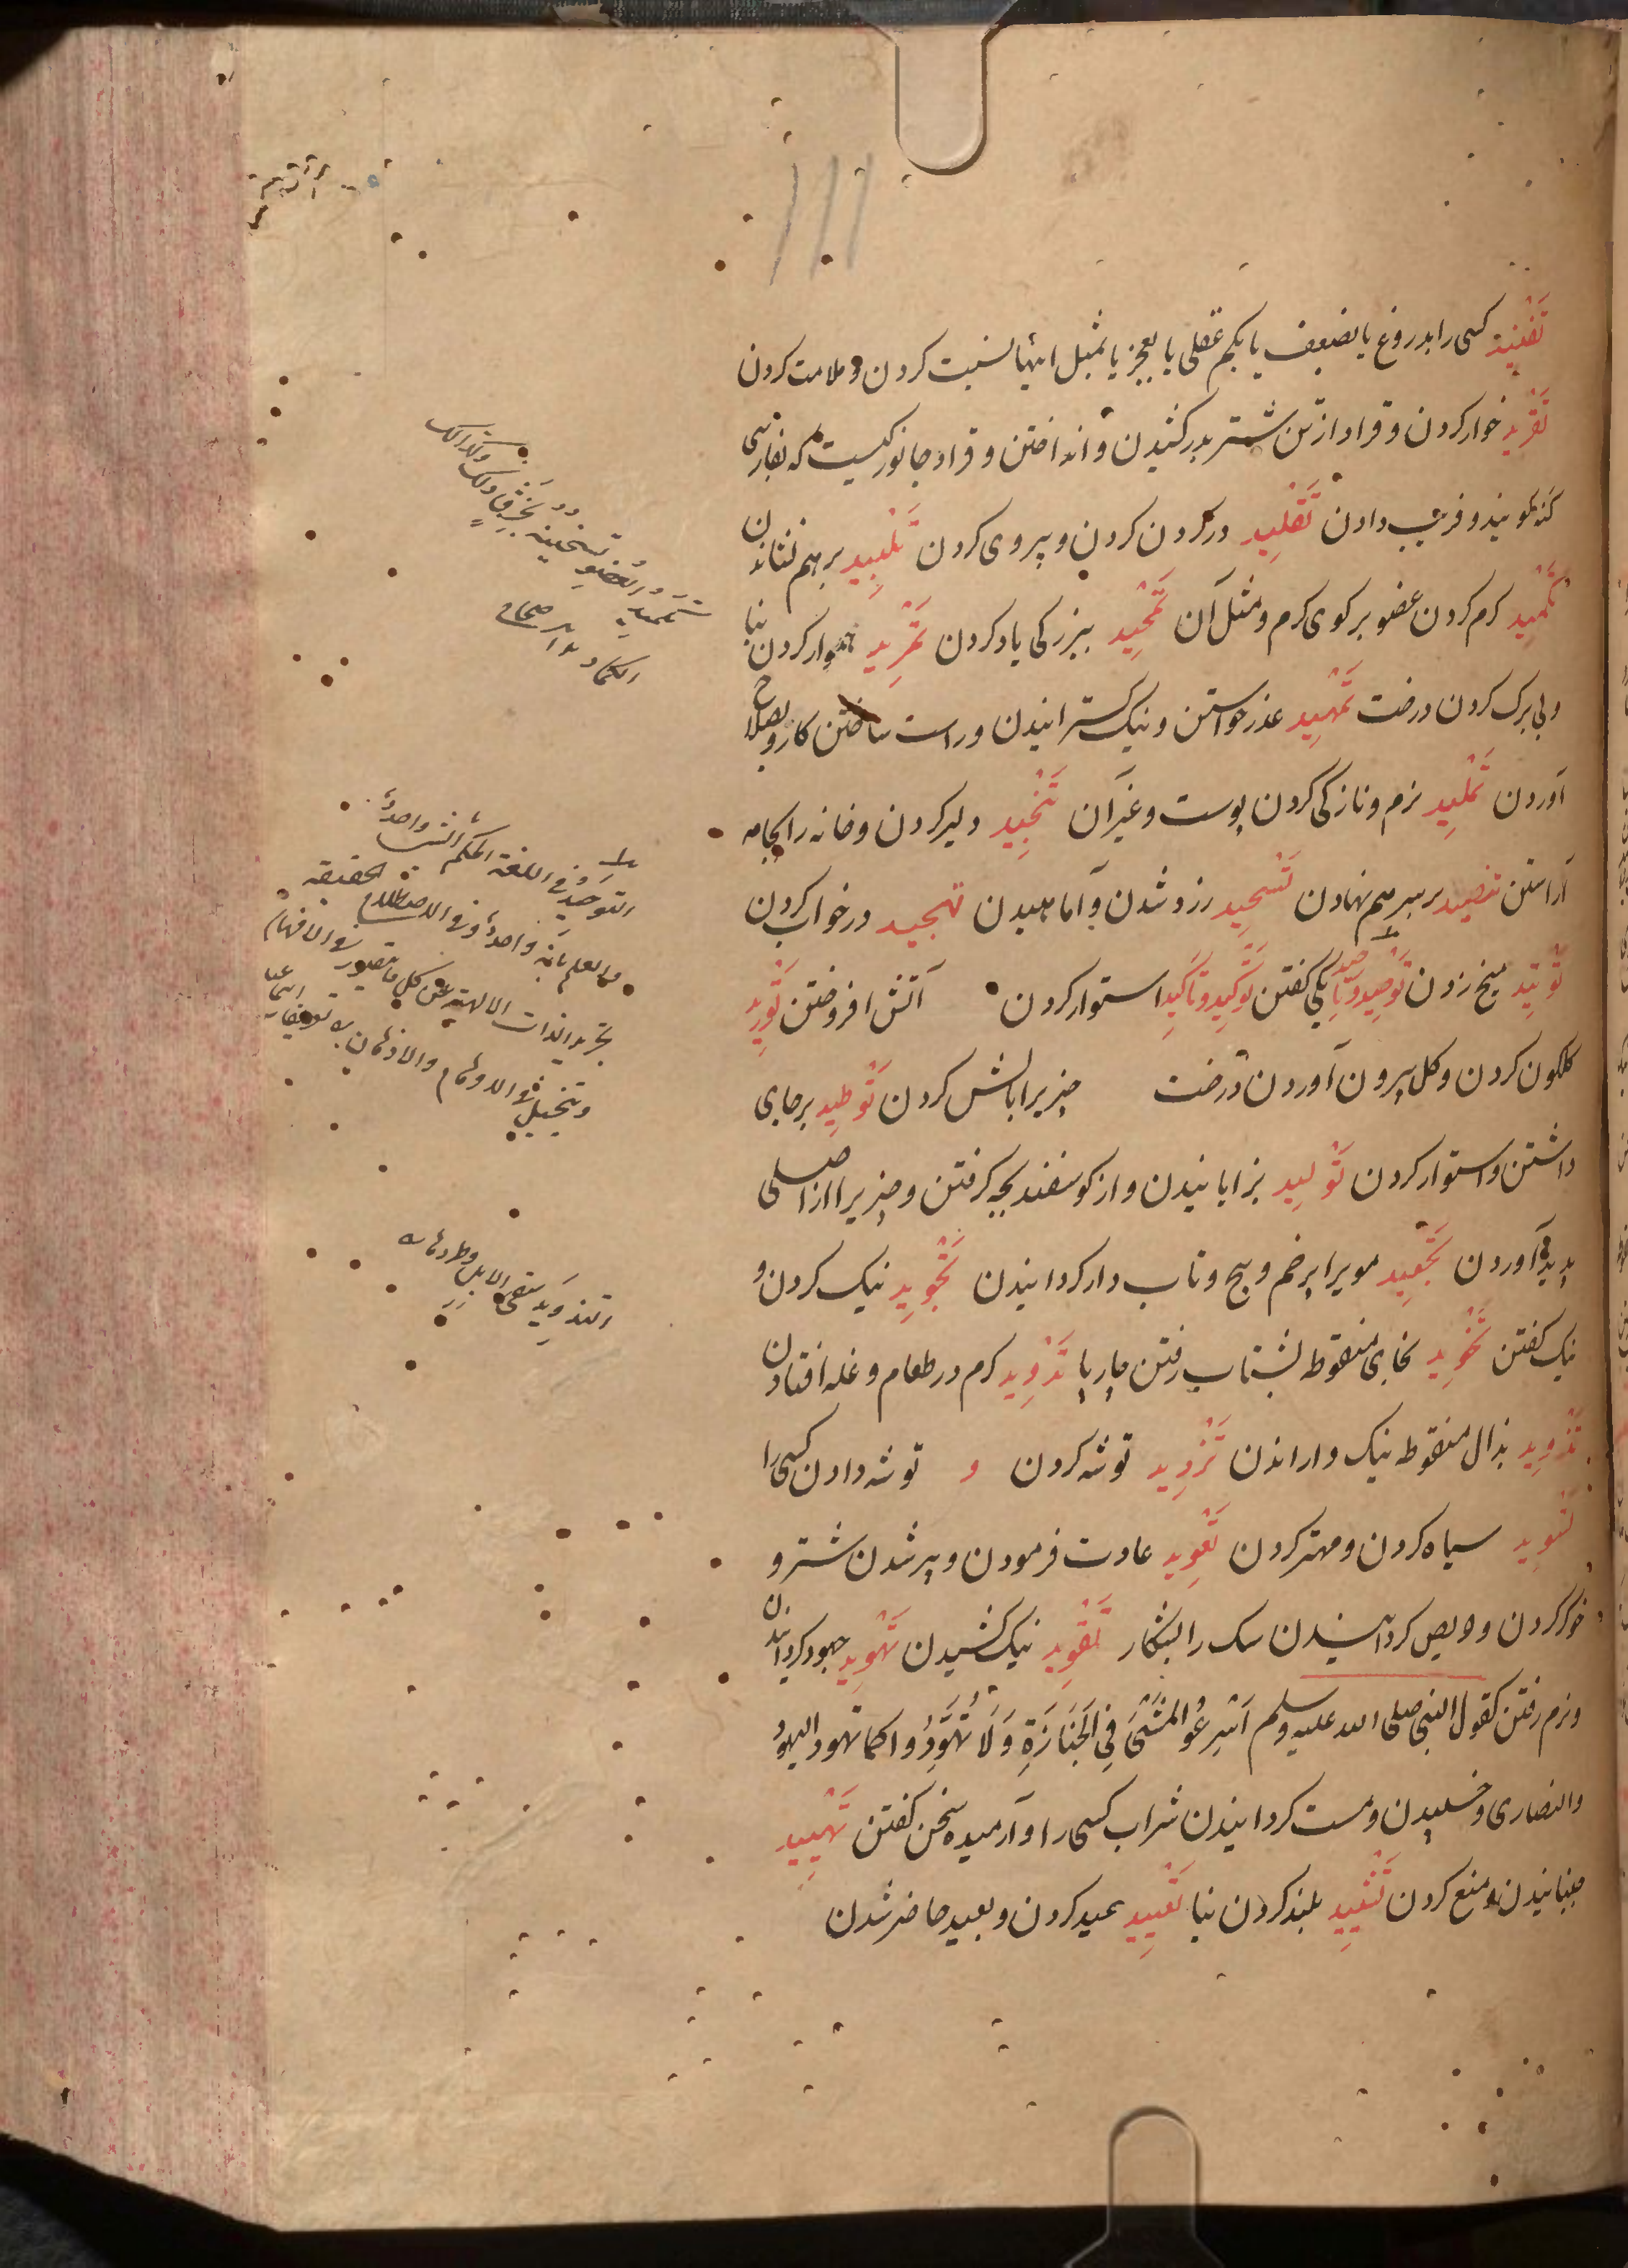 تَفْنِید کسی را بدروغ یا بضعیف یا بکم عقلی یا بعجز یا بمثل اینها نسبت کردن و ملامت کردن
تَقْرِید خوار کردن و قراد از تن شتر بدر کشیدن و انداختن و قراد جانوریست که بفارسی
کنه کویند و فریب دادن تَقْلِید در کردن کردن و پیروی کردن تَلْبِید برهم نشاندن
تَکْمِید کرم کردن عضو برکوی کرم و مثل آن تَمْجِید ببزرکی یاد کردن تَمْرِید هموار کردن بنا
و بی برک کردن درخت تَمْهِید عذر خواستن و نیک کسترانیدن و راست ساختن کار و بصلاح
آوردن تَمْلِید نرم و نازکی کردن پوست و غیر آن تَنْجِید دلیر کردن و خانه را بجامه
آراستن تنضید بر سر هم نهادن تَسْحِید زرد شدن و آماهیدن تهجید در خواب کردن
تَوْتِید میخ زدن تَوْحِید یکی کفتن تَوْکِید و تَاْکِید استوار کردن آتش افروختن تَوْرِید
کلکون کردن و کل بیرون آوردن درخت چیزیرا بالش کردن تَوْطِید بر جای
داشتن و استوار کردن تَوْلِید بزایانیدن و از کوسفند بچه کرفتن و چیزیرا از اصلی
پدید آوردن تَجْعِید مویرا پرخم و پیچ و تاب دار کردانیدن تَجْوِید نیک کردن و
نیک کفتن تَخْوِید بخای منقوطه بشتاب رفتن چارپا تَدْوِید کرم در طعام و غله افتادن
تَذْوِید بذال منقوط نیک واراندن تَزْوِید توشه کردن و توشه دادن کسی را
تَسْوِید سیاه کردن و مهتر کردن تَعْوِید عادت فرمودن و پیر شدن شتر و
خوکر کردن و حریص کردانیدن سک را بشکار تَقْوِید نیک کشیدن تَهْوِید جهود کردانیدن
و نرم رفتن کقول النبی صلی الله علیه وسلم اَسْرِعُو المَشْیَ فِی الجَنَازَةِ وَلَا تُهَوِّدُوا کما تهود الیهودُ
والنصاری و خسپیدن و مست کردانیدن شراب کسی را و آرمیده سخن کفتن تَهْیِید
جنبانیدن و منع کردن تَشْیِید بلند کردن بنا تَعْیِید عید کردن و بعید حاضر شدن
تکمید العضو تسخینه بخرق وکذلک
الکماد صحاح
التوحید فی اللغة الحکم بان الشی واحد
والعلم بانه واحد وفی الاصطلاح الحقیقه
تجرید الذات الالهیة عن کل ما یتصور فی الافهام
ویتخیل فی الاوهام والاذهان
التذوید سَقی الابل وطردها